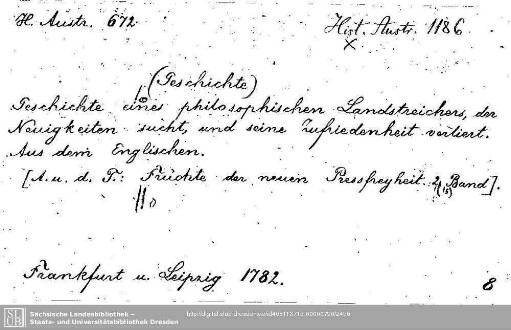 H. Austr. 672.
Hist. Austr. 1186
x
(Geschichte)
Geschichte eines philosophischen Landstreichers, der
Neuigkeiten sucht, und seine Zufriedenheit verliert.
Aus dem Englischen.
[A. u. d. T.: Früchte der neuen Pressfreyheit. 2 Band].
Frankfurt u. Leipzig 1782.
8
Sächsische Landesbibliothek –
Staats- und Universitätsbibliothek Dresden